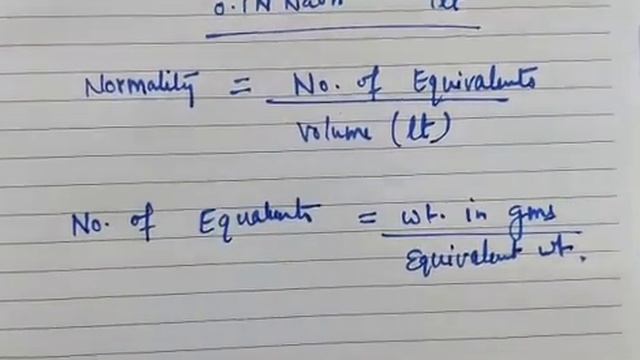 0.1N NaOH 1lt
Normality = No. of Equivalents
Volume (lt)
No. of Equalents = wt. in gms
Equivalent wt.